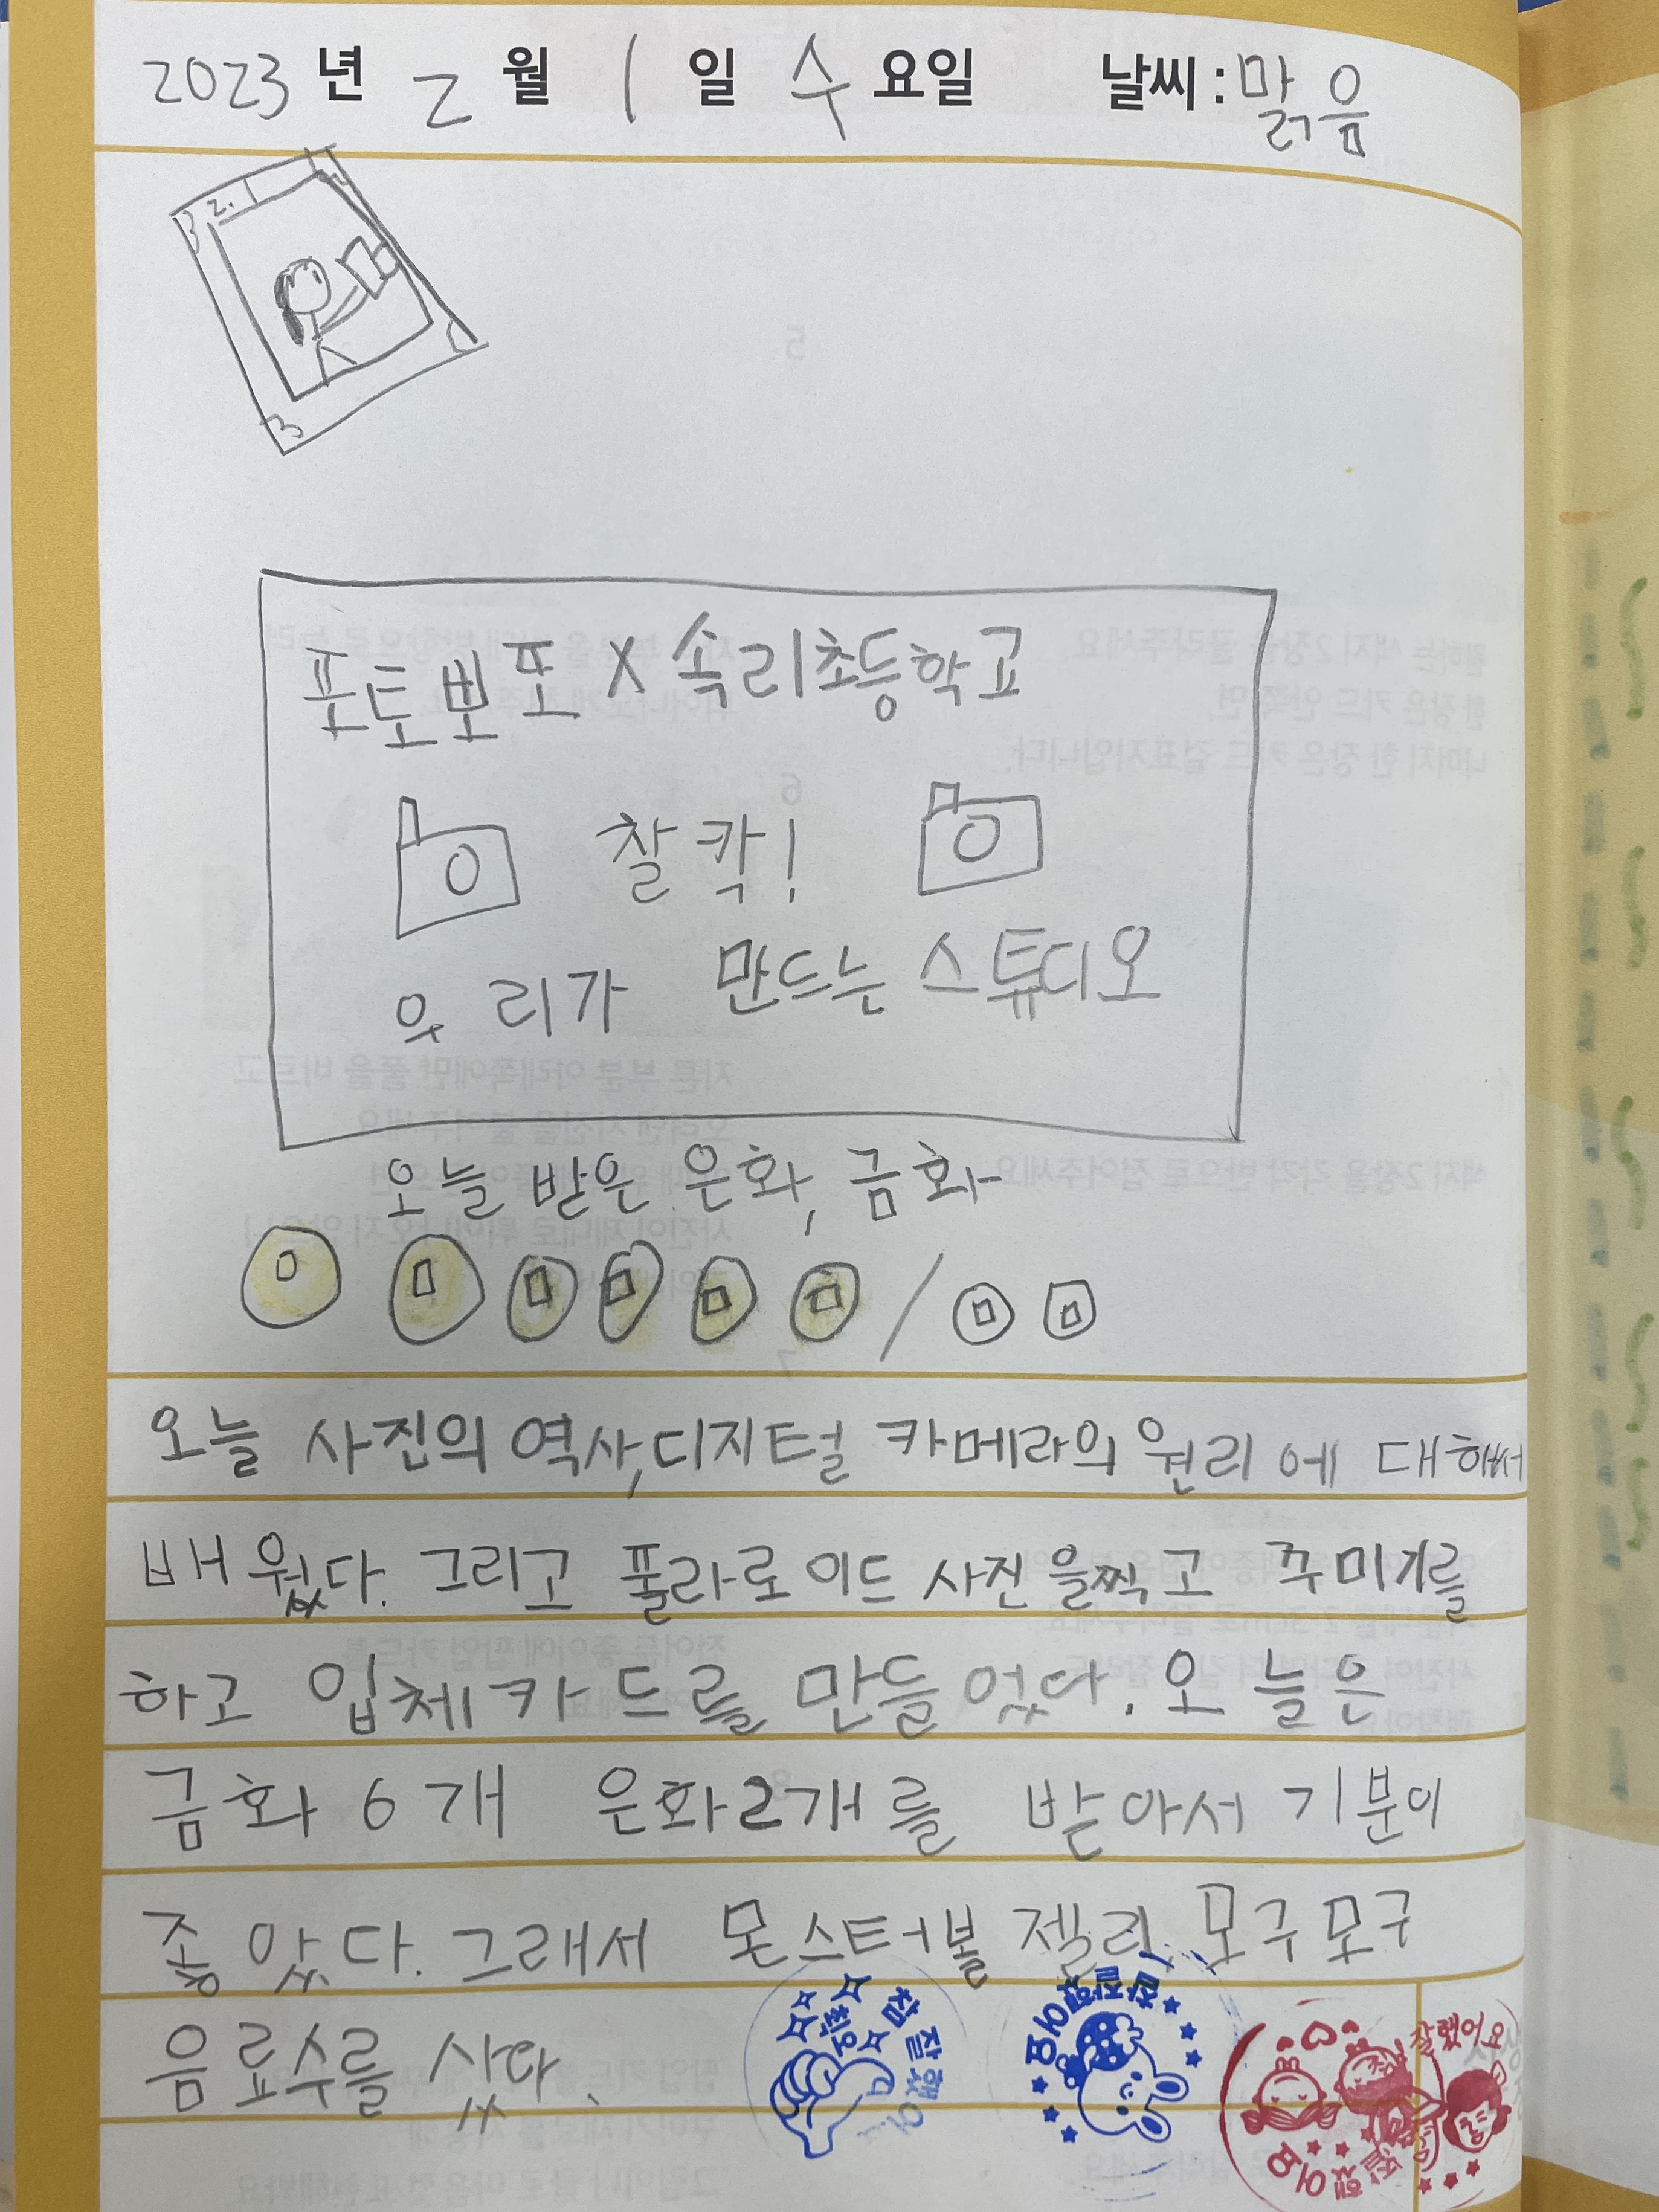 2023 년 2 월 1 일 수 요일 날씨 : 맑음
2. 1
포토뽀또 X 속리초등학교
찰칵!
우리가 만드는 스튜디오
오늘 받은 은화, 금화
오늘 사진의 역사, 디지털 카메라의 원리에 대해서
배웠다. 그리고 풀라로이드 사진을찍고 꾸미기를
하고 입체카드를 만들었다. 오늘은
금화 6개 은화2개를 받아서 기분이
좋았다. 그래서 몬스터볼 젤리, 모구모구
음료수를 샀다.
참 잘했어
최고
참 잘했어요
잘했어요